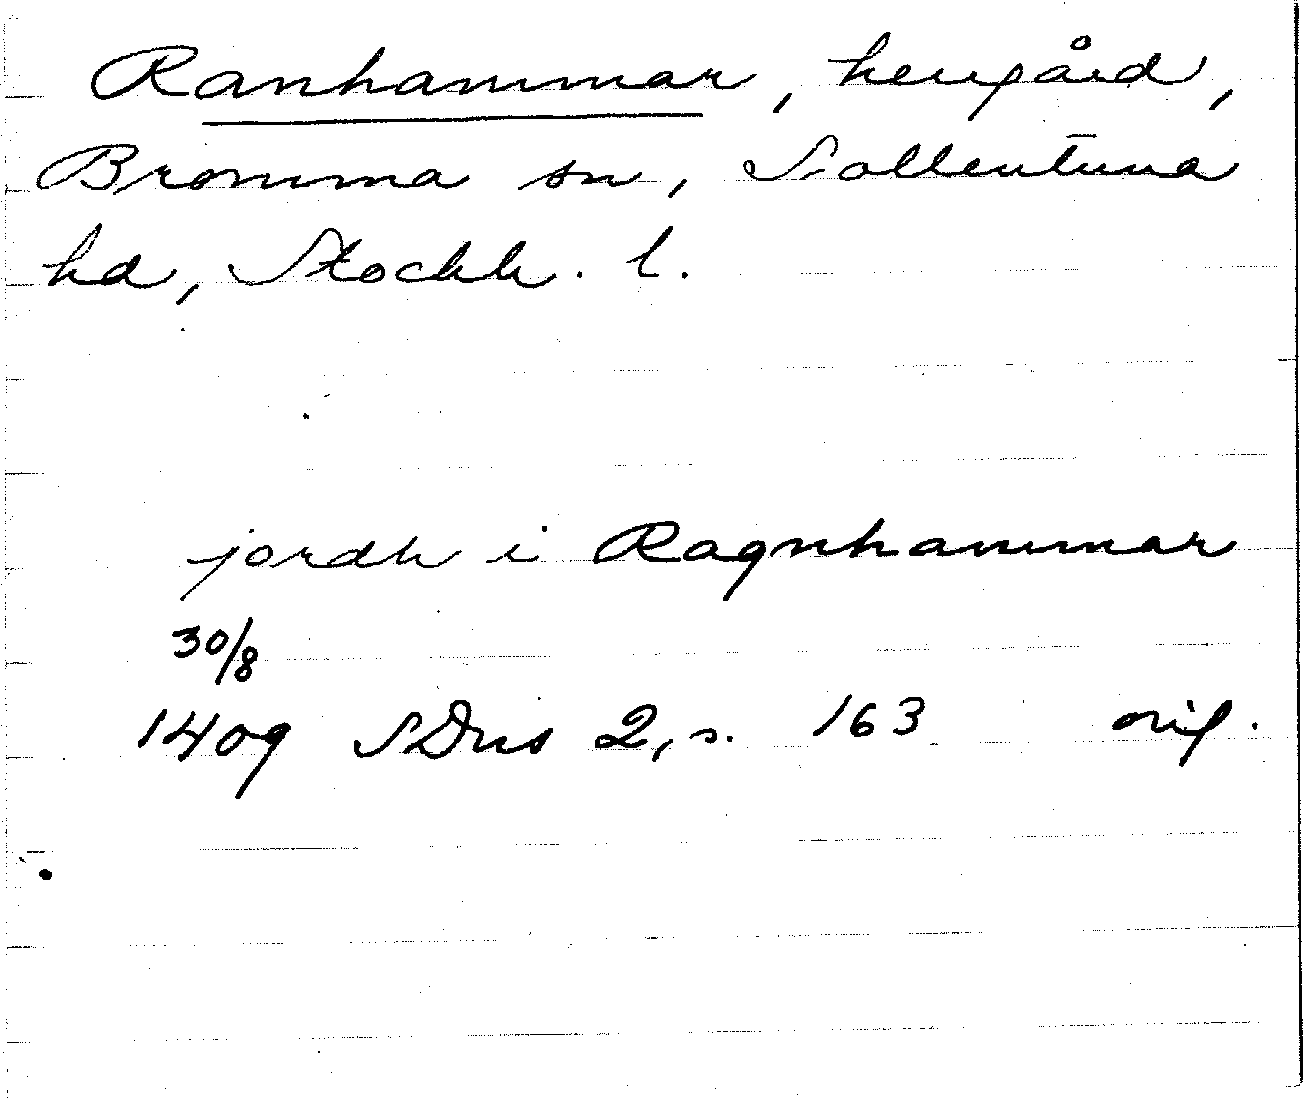 Ranhammar, herrgård,
Bromma sn, Sollentuna
hd, Stockh. l.
jordh i Ragnhammar
30/8
1409 SDns 2, s. 163 orig.